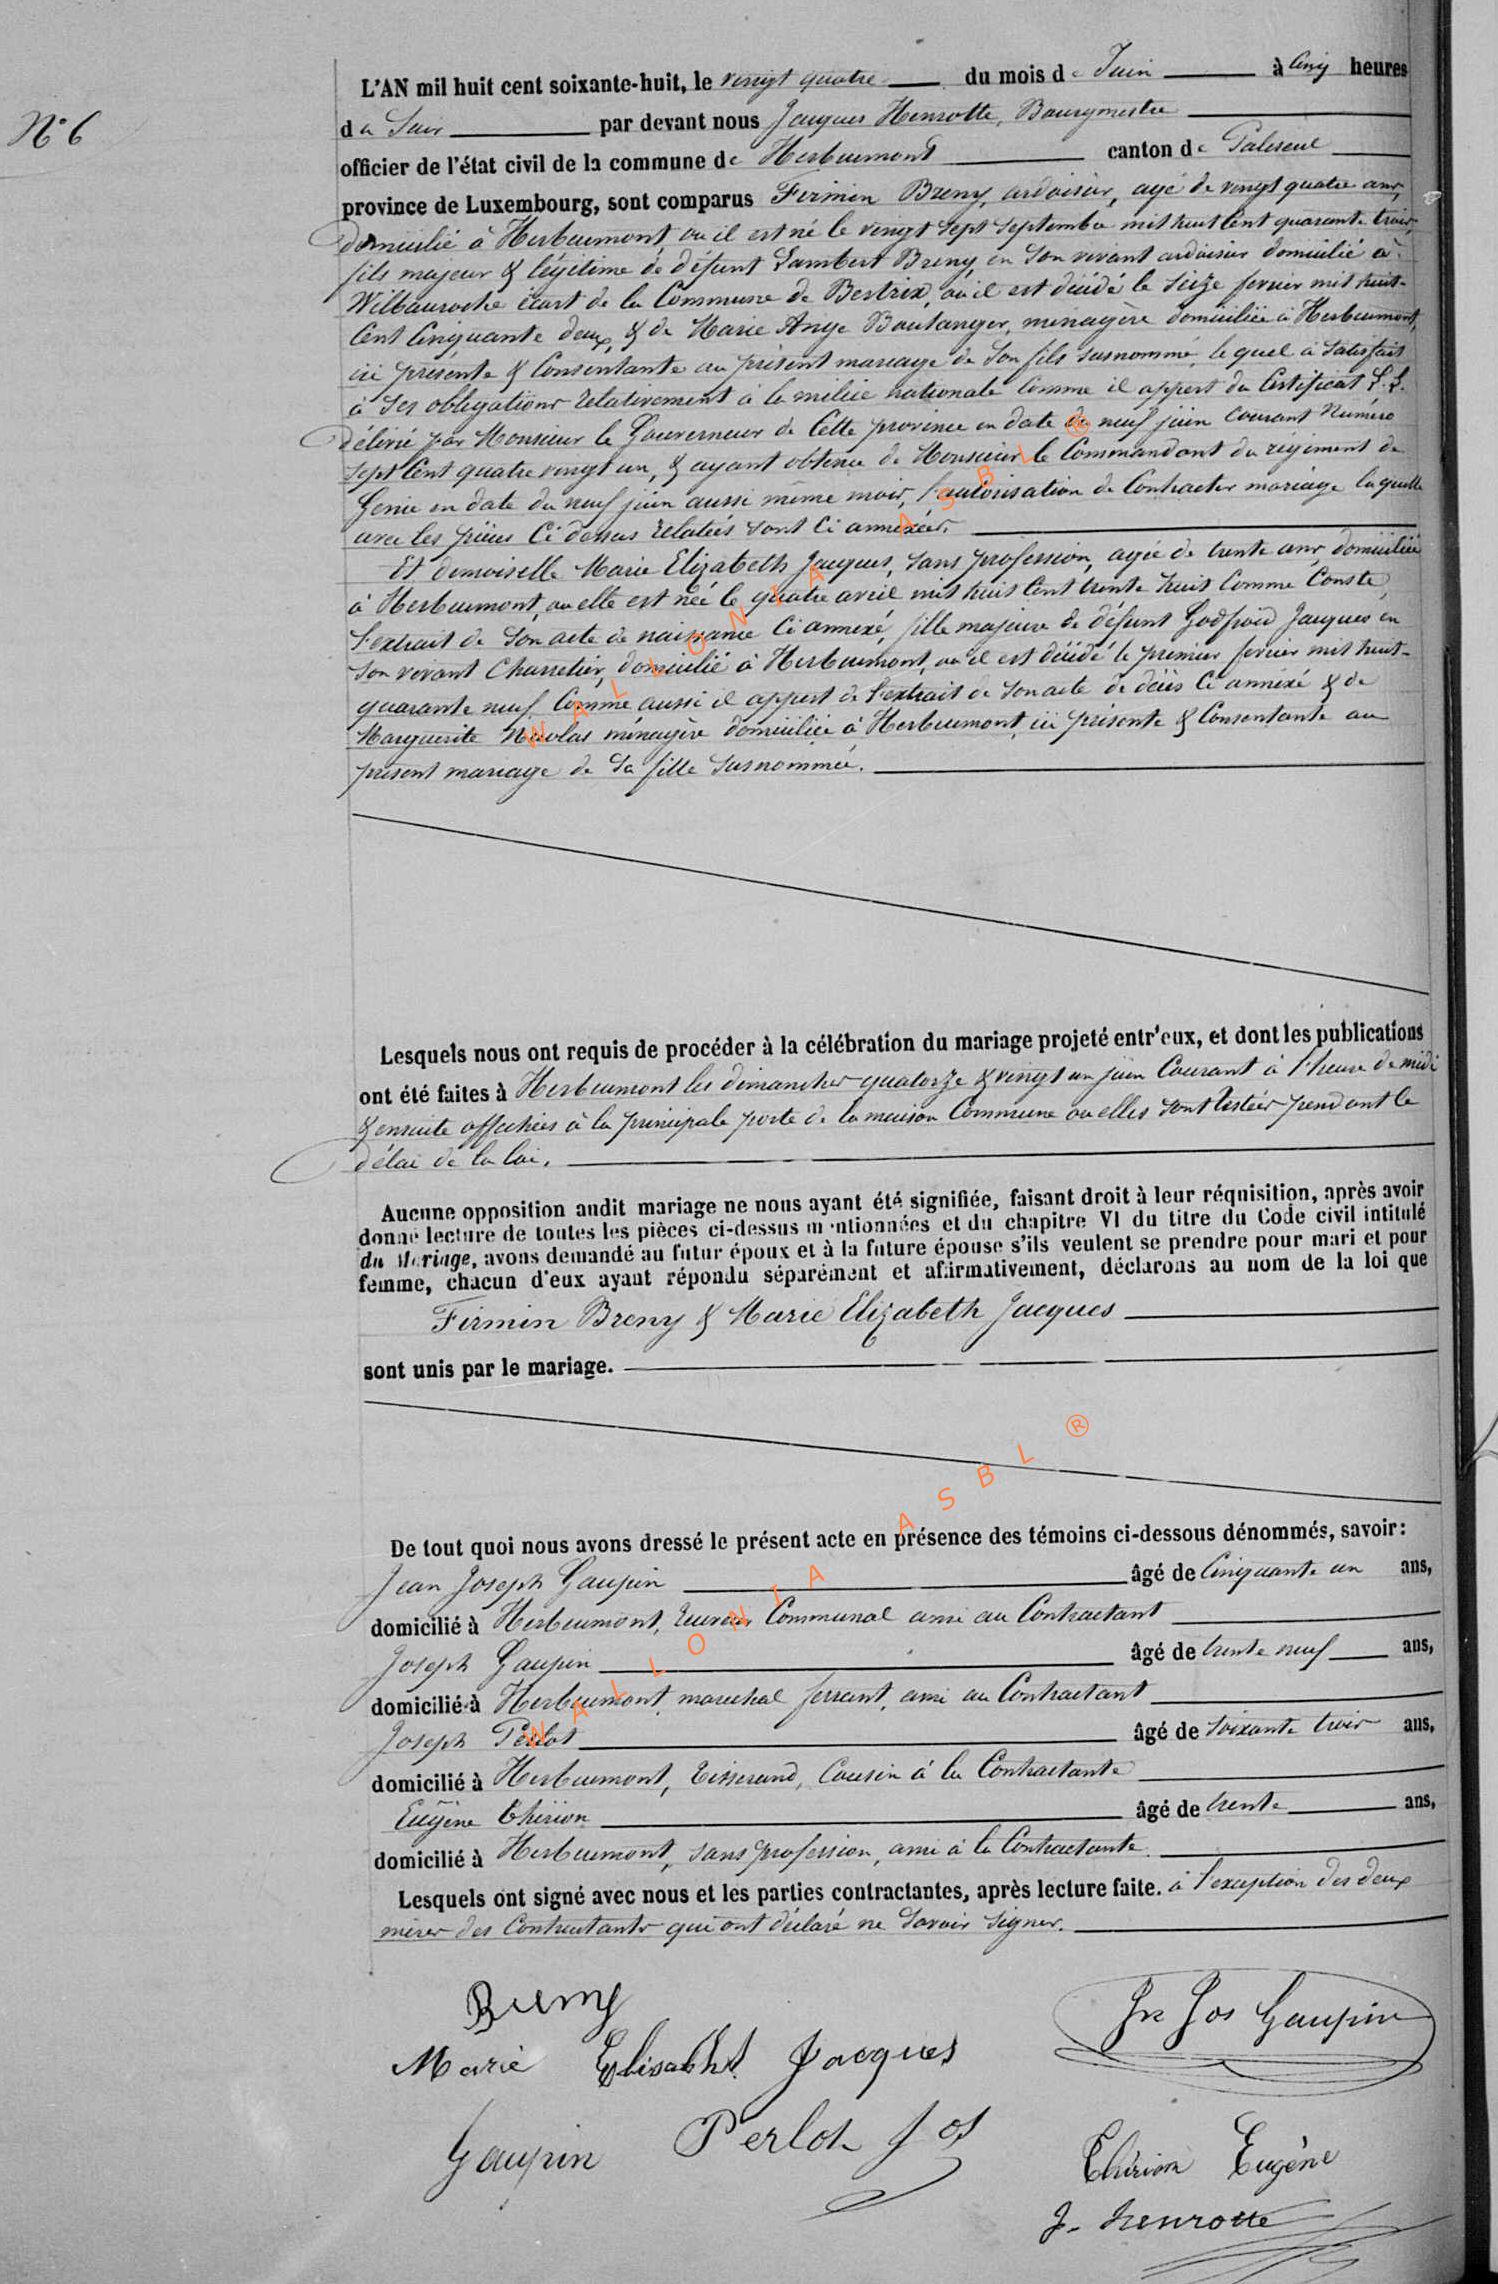 N° 6
L'AN mil huit cent soixante-huit, le vingt quatre du mois de Juin à Cinq heures
du Soir par devant nous Jacques Henrotte, Bourgmestre
officier de l'état civil de la commune de Herbeumont canton de Paliseul
province de Luxembourg, sont comparus Firmin Breny, ardoisier, agé de vingt quatre ans,
domicilié à Herbeumont, où il est né le vingt sept septembre mil huit Cent quarante trois,
fils majeur & légitime de défunt Lambert Breny, en Son vivant ardoisier domicilié à
Wilbauroche écart de la Commune de Bertrix, où il est décédé le Seize fevrier mil huit-
Cent Cinquante deux, & de Marie Ange Boulanger, menagère domiciliée à Herbeumont,
ici présente & Consentante au présent mariage de Son fils susnommé, le quel à Satisfait
à Ses obligations relativement à la milice nationale Comme il appert du Certificat L. L.
délivré par Monsieur le Gouverneur de Cette province en date du neuf juin Courant Numéro
sept Cent quatre vingt un, & ayant obtenu de Monsieur le Commandant du régiment de
Genie en date du neuf juin aussi même mois, l'autorisation de Contracter mariage laquelle
avec les pièces Ci dessus relatées sont Ci annexées.
Et demoiselle Marie Elizabeth Jacques, sans profession, agée de trente ans, domiciliée
à Herbeumont, ou elle est née le quatre avril mil huit Cent trente huit Comme Conste
l'extrait de Son acte de naissance Ci annexé, fille majeure de défunt Godfroid Jacques en
son vivant Charretier, domicilié à Herbeumont, ou il est décédé le premier fevrier mil huit-
quarante neuf Comme aussi il appert de l'extrait de Son acte de décès Ci annexé & de
Marguerite Nicolas ménagère domiciliée à Herbeumont, ici présente & Consentante au
présent mariage de Sa fille Susnommée.
Lesquels nous ont requis de procéder à la célébration du mariage projeté entr'eux, et dont les publications
ont été faites à Herbeumont les dimanches quatorze & vingt un juin Courant à l'heure de midi
& ensuite affichées à la principale porte de la maison Commune ou elles sont restées pendant le
délai de la loi.
Aucune opposition audit mariage ne nous ayant été signifiée, faisant droit à leur réquisition, après avoir
donné lecture de toutes les pièces ci-dessus mentionnées et du chapitre VI du titre du Code civil intitulé
du Mariage, avons demandé au futur époux et à la future épouse s'ils veulent se prendre pour mari et pour
femme, chacun d'eux ayant répondu séparément et affirmativement, déclarons au nom de la loi que
Firmin Breny & Marie Elizabeth Jacques
sont unis par le mariage.
De tout quoi nous avons dressé le présent acte en présence des témoins ci-dessous dénommés, savoir :
Jean Joseph Gaupin âgé de Cinquante un ans,
domicilié à Herbeumont, receveur Communal ami au Contractant
Joseph Gaupin âgé de trente neuf ans,
domicilié à Herbeumont, marechal ferrant, ami au Contractant
Joseph Perlot âgé de Soixante trois ans,
domicilié à Herbeumont, tisserand, Cousin à la Contractante
Eugène Thirion âgé de trente ans,
domicilié à Herbeumont, sans profession, ami à la Contractante.
Lesquels ont signé avec nous et les parties contractantes, après lecture faite. à l'exception des deux
mères des Contractants qui ont déclaré ne Savoir Signer.
Breny
Jn Jos Gaupin
Marie Elisabht Jacques
Gaupin Perlot Jos
Thirion Eugène
J. henrotte
WALLONIA ASBL ®
WALLONIA ASBL ®